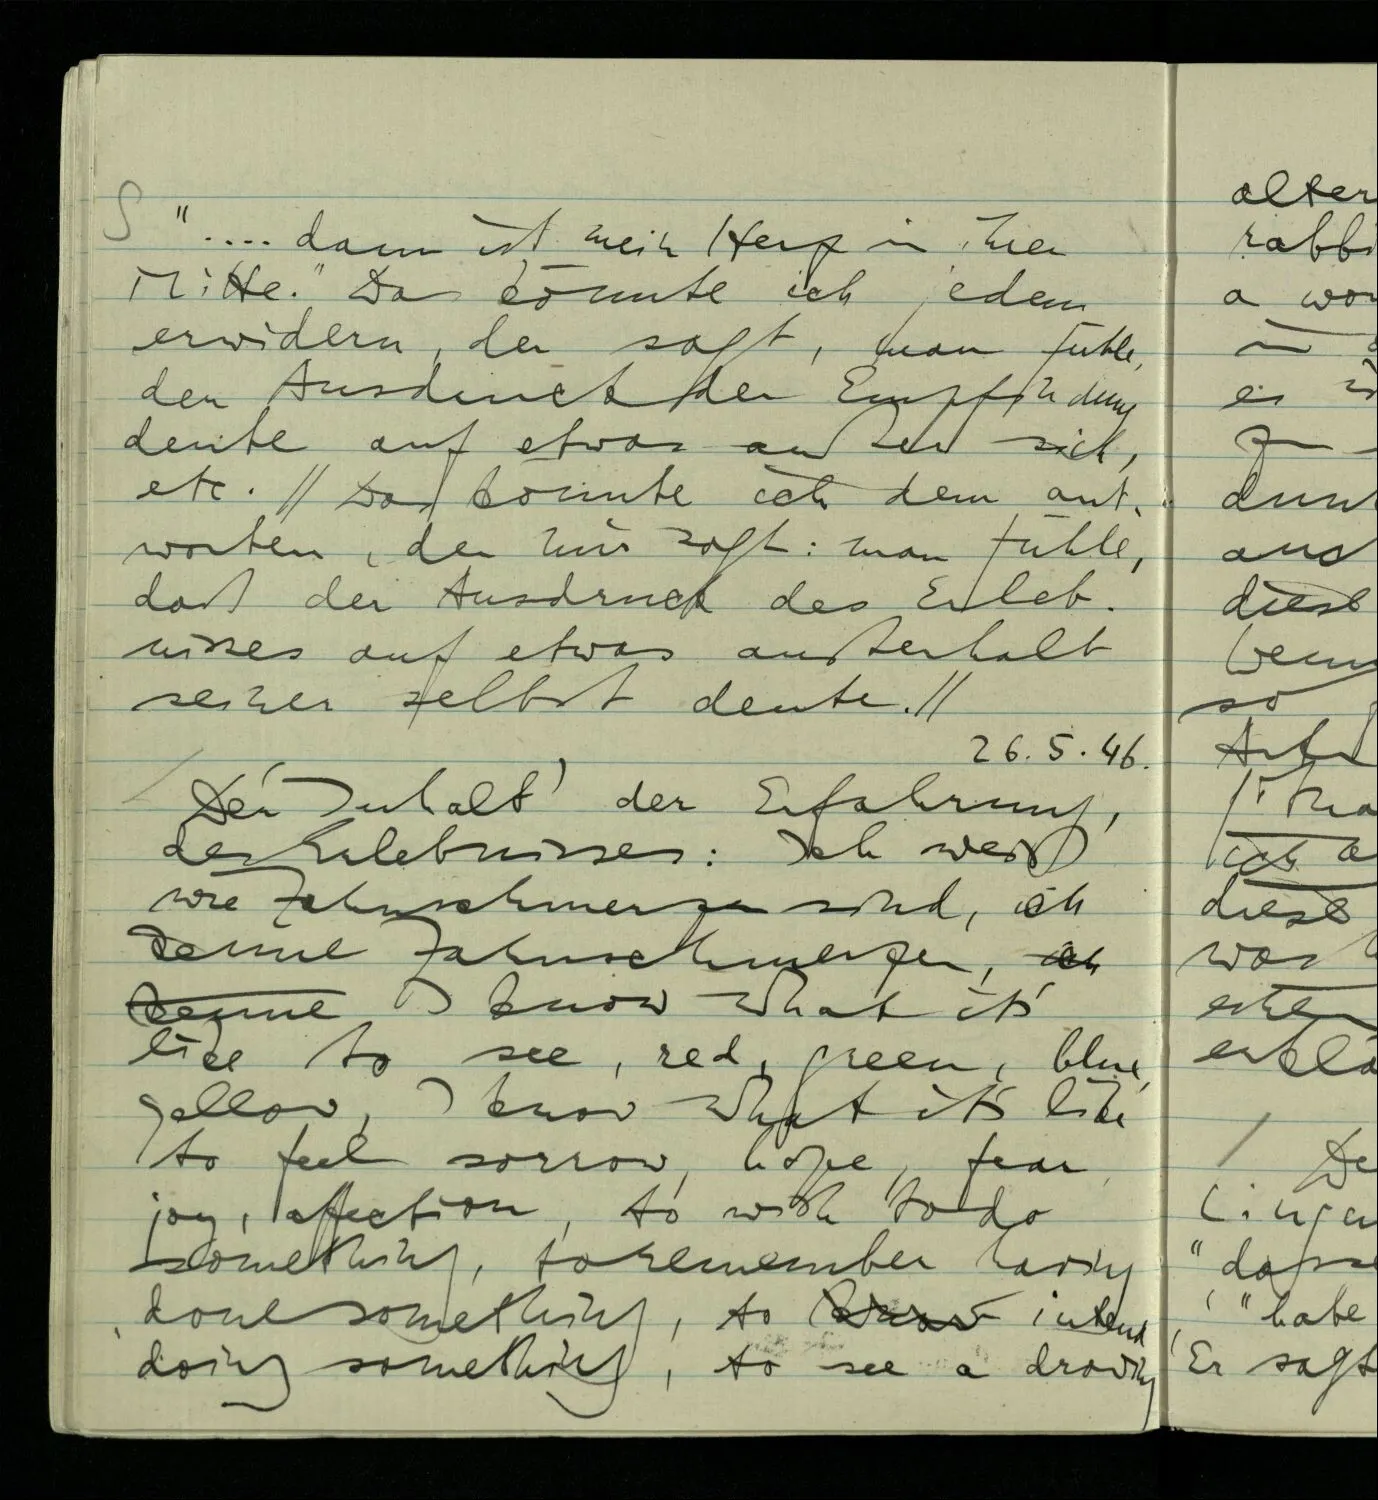 S ".... dann ist mein Herz in ihrer
Mitte." Da könnte ich jedem
erwidern, der sagt, man fühle,
der Ausdruck der Empfindung
deute auf etwas außer sich,
etc. // Da könnte ich dem ant-
worten, der mir sagt: man fühle,
daß der Ausdruck des Erleb-
nisses auf etwas außerhalb
seiner selbst deute. //
26.5.46.
/ Der 'Inhalt' der Erfahrung,
des Erlebnisses: Ich weiß
wie Zahnschmerzen sind, ich
kenne Zahnschmerzen, ich
kenne I know what it's
like to see, red, green, blue,
yellow, I know what it's like
to feel sorrow, hope, fear,
joy, affection, to wish to do
something, to remember having
done something, to know intend
doing something, to see a drawing
alter
rabbi
a
in
es
zu
dunk
and
diese
so
ich
diese
was
/ De
"
, "habe
Er sagt